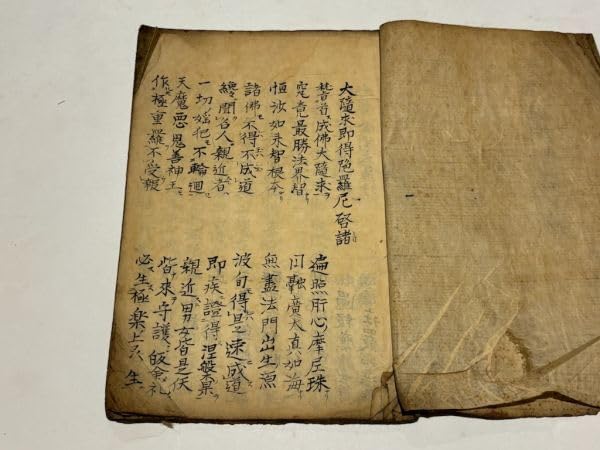 大隨求即得陀羅尼啓諸
成佛大隨求 遍照肝心摩尼珠
究竟最勝法界智 円融廣大真如海
恒沙如来智根本 無盡法門出生源
諸佛不得不成道 波旬得是速成道
纔聞名人親近者 即疾證得涅槃果
一切婬犯不輪迴 親近男女皆是天
天魔悪鬼善神王 皆来守護皈命礼
作極重羅不受報 必生極楽上々生